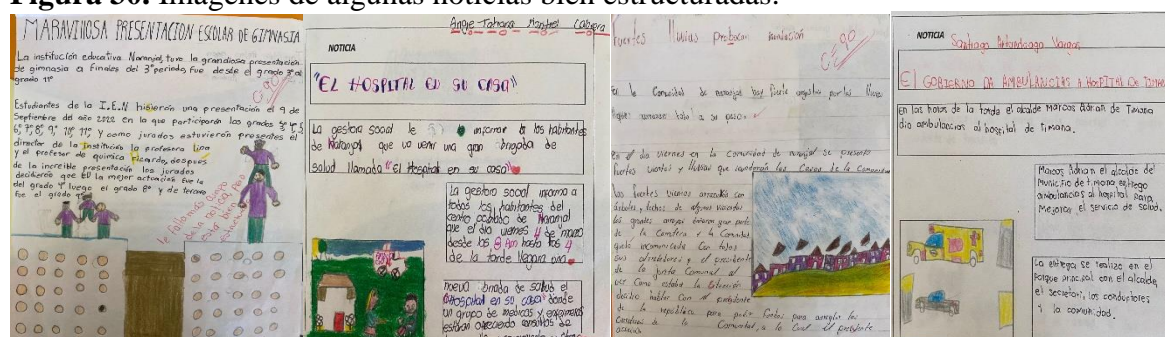 Figura 30. Imágenes de algunas noticias bien estructuradas.
MARAVINOSA PRESENTACIÓN ESCOLAR DE GIMNASIA
La institución educativa Naranjal, tuvo la grandiosa presentación
de gimnasia a finales del 3° periodo, fue desde el grado 3° al
grado 11°
Estudiantes de la I.E.N hisieron una presentación el 9 de
Septiembre del año 2022 en la que participaron los grados 3° 4° 5°
6°, 7°, 8°, 9°, 10°, 11°, y como jurados estuvieron presentes el
director de la institución la profesora Lina
y el profesor de química Ricardo, despues
de la increible presentación los jurados
decidieron que la mejor actuación fue la
del grado 9° luego el grado 8° y de tercero
fue el grado
NOTICIA
"EL HOSPITAL EN SU CASA"
La gestora social le informar a los habitantes
de Naranjal que va venir una gran brigada de
salud llamada "El Hospital en su casa"
La gestora social informa a
todos los habitantes del
centro poblado de Naranjal
que el dia viernes 4 de marzo
desde las 8 Am hasta las 4
de la tarde llegara una
nueva brigada de salud el
"Hospital en su casa" donde
un grupo de medicos y enfermeros
estaran ofreciendo servicios de
Fuertes lluvias probocan inundación
En la Comunidad de naranjal hay fuerte angustia por las lluvias
que arrasan todo a su paso
En el dia viernes en la comunidad de naranjal se presento
fuertes vientos y lluvias que inundaron las Casas de la Comunidad
los fuertes vientos arrazaron con
árboles, techos de algunas viviendas
de la Carretera y la Comunidad
quedo incomunicada Con todos
sus alrededores y el presidente
de la junta Comunal al
ver Como estaba la situación
decidio hablar Con el presidente
de la republica para pedir fondos para arreglar las
de la Comunidad, a lo Cual el presidente
NOTICIA Santiago Vargas
El GOBIERNO DA AMBULANCIAS A HOSPITAL DE TIMANA
En las horas de la tarde el alcalde Marcos Adrian de Timana
dio ambulancias al hospital de timana.
Marcos Adrian el alcalde del
Municipio de timana, entrego
ambulancias al hospital para
Mejorar el servicio de salud.
La entrega se realizo en el
Parque principal con el alcalde,
el secretari, los conductores
y la comunidad.